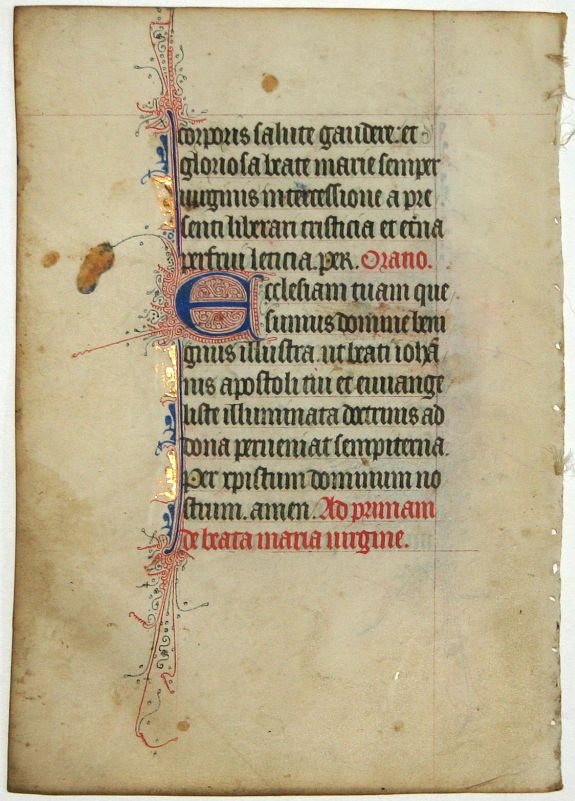 corporis salute gaudere: et
gloriosa beate marie semper
uirginis intercessione a pre
senti liberari tristicia et et̃na
perfrui leticia. per. Oratio.
Ecclesiam tuam que
sumus domine beni
gnus illustra. ut beati iohã
nis apostoli tui et euuange
liste illuminata doctrinis ad
dona perueniat sempiterna.
Per xp̃istum dominum no
strum. amen. Ad primam
de beata maria uirgine.